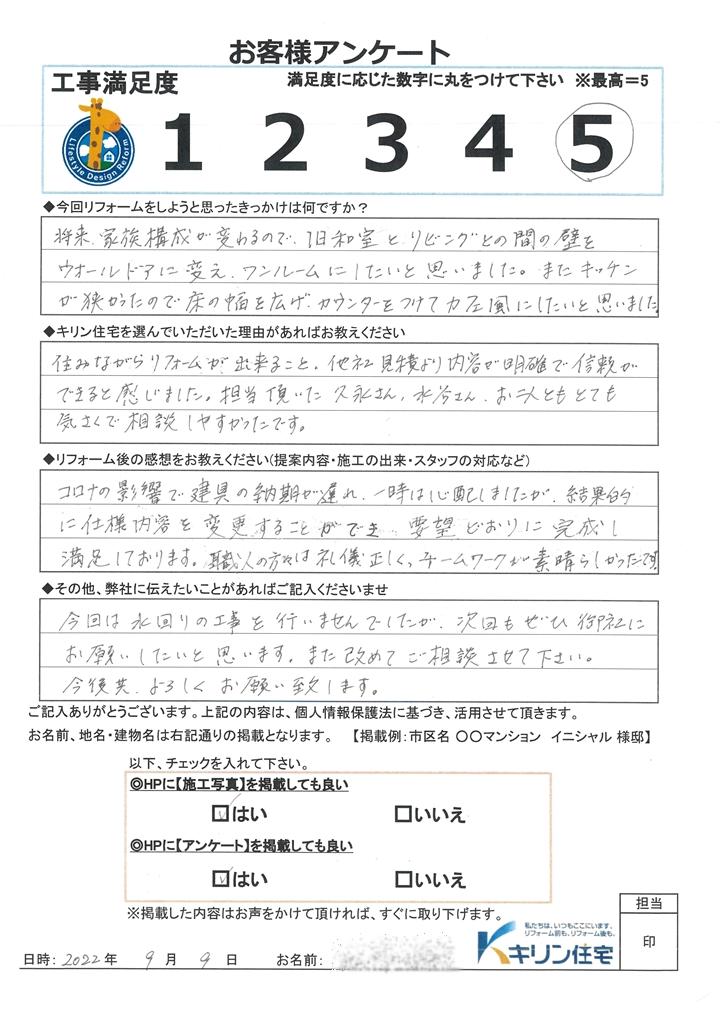 お客様アンケート
工事満足度
満足度に応じた数字に丸をつけて下さい ※最高＝5
Lifestyle Design Reform
1 2 3 4 5
◆今回リフォームをしようと思ったきっかけは何ですか？
将来、家族構成が変わるので、旧和室とリビングとの間の壁を
ウォールドアに変え、ワンルームにしたいと思いました。またキッチン
が狭かったので床の幅を広げ、カウンターをつけてカフェ風にしたいと思いました
◆キリン住宅を選んでいただいた理由があればお教えください
住みながらリフォームが出来ること。他社見積より内容が明確で信頼が
できると感じました。担当頂いた久永さん、水谷さん、お二人ともとても
気さくで相談しやすかったです。
◆リフォーム後の感想をお教えください(提案内容・施工の出来・スタッフの対応など)
コロナの影響で建具の納期が遅れ、一時は心配しましたが、結果的
に仕様内容を変更することができ、要望どおりに完成し
満足しております。職人の方々は礼儀正しく、チームワークが素晴らしかったです
◆その他、弊社に伝えたいことがあればご記入くださいませ
今回は水回りの工事を行いませんでしたが、次回もぜひ御社に
お願いしたいと思います。また改めてご相談させて下さい。
今後共、よろしくお願い致します。
ご記入ありがとうございます。上記の内容は、個人情報保護法に基づき、活用させて頂きます。
お名前、地名・建物名は右記通りの掲載となります。 【掲載例：市区名 〇〇マンション イニシャル 様邸】
以下、チェックを入れて下さい。
◎HPに【施工写真】を掲載しても良い
☑はい □いいえ
◎HPに【アンケート】を掲載しても良い
☑はい □いいえ
※掲載した内容はお声をかけて頂ければ、すぐに取り下げます。
担当
印
私たちは、いつもここにいます。
リフォーム前も、リフォーム後も。
キリン住宅
日時：2022年 9月 9日 お名前：